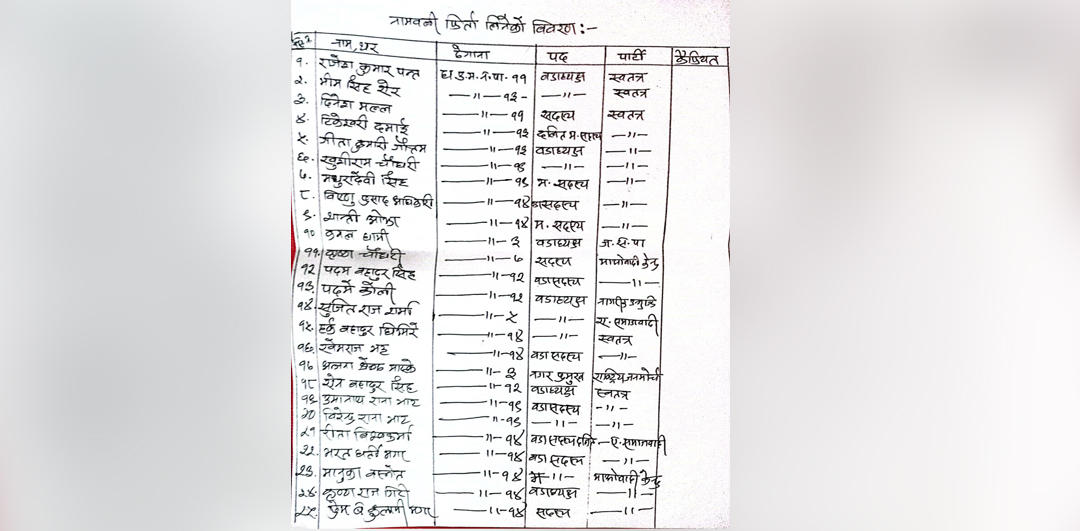 नामावली फिर्ता लिनेको विवरण :-
क्र.सं. नाम, थर ठेगाना पद पार्टी कैफियत
१. राजेश कुमार पन्त घो.उ.म.न.पा. ११ वडाध्यक्ष स्वतन्त्र
२. भीम सिंह शेर —॥— १३ - —॥— स्वतन्त्र
३. दिनेश मल्ल —॥— ११ सदस्य स्वतन्त्र
४. टिकेश्वरी दमाई —॥— १३ दलित म. सदस्य —॥—
५. गीता कुमारी गौतम —॥— १३ वडाध्यक्ष —॥—
६. खुशीराम चौधरी —॥— १४ —॥— —॥—
७. मथुरादेवी सिंह —॥— १६ म. सदस्य —॥—
८. विष्णु प्रसाद अधिकारी —॥— १४ वडासदस्य —॥—
९. शान्ती ओझा —॥— १४ म. सदस्य —॥—
१० कमल शाही —॥— ३ वडाध्यक्ष ज.स.पा
११. कृष्णा चौधरी —॥— ७ सदस्य माओवादी केन्द्र
१२ पदम बहादुर सिंह —॥— १२ वडासदस्य —॥—
१३. पदमे कामी —॥— १२ वडाध्यक्ष नागरिक उन्मुक्ति
१४. सुजित राज शर्मा —॥— ५ —॥— ए. समाजवादी
१५. हर्क बहादुर घिमिरे —॥— १४ —॥— स्वतन्त्र
१६. खेमराज भट्ट —॥— १४ वडा सदस्य —॥—
१७ —॥— ३ नगर प्रमुख राष्ट्रिय जनमोर्चा
१८ शेर बहादुर सिंह —॥— १२ वडाध्यक्ष स्वतन्त्र
१९ उमानाथ राना भाट —॥— १६ वडासदस्य -॥-
२० विरेन्द्र राना भाट —॥— १६ —॥— —॥—
२१ रीता विश्वकर्मा —॥— १४ वडा सदस्य दलित ए. समाजवादी
२२. भरत घर्ती मगर —॥— १४ वडा सदस्य —॥—
२३. मातृका बस्नेत —॥— १४ म —॥— माओवादी केन्द्र
२४. कृष्ण राज गिरी —॥— १४ वडाध्यक्ष —॥—
२५. प्रेम ब. मगर —॥— १४ सदस्य —॥—